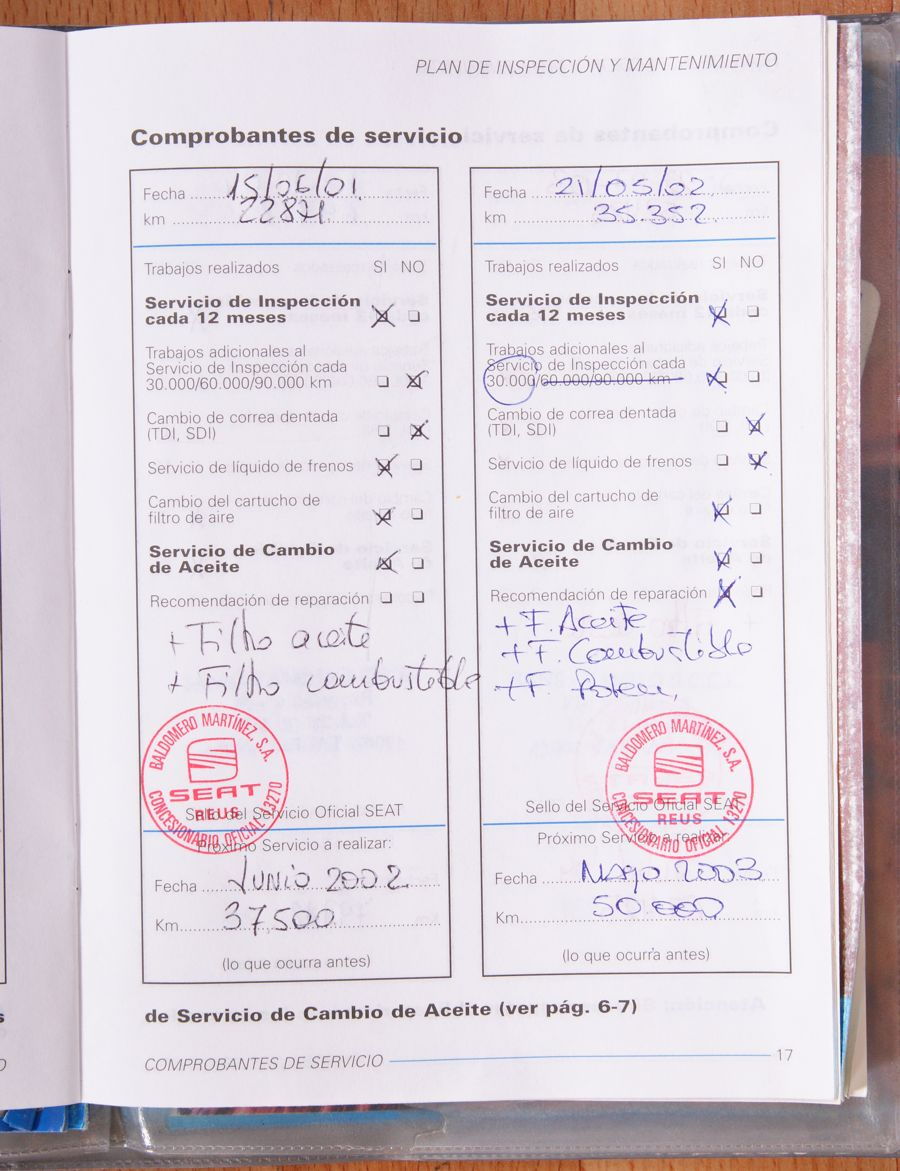 PLAN DE INSPECCIÓN Y MANTENIMIENTO
Comprobantes de servicio
Fecha 15/06/01
km 22871
Trabajos realizados SI NO
Servicio de Inspección
cada 12 meses
Trabajos adicionales al
Servicio de Inspección cada
30.000/60.000/90.000 km
Cambio de correa dentada
(TDI, SDI)
Servicio de líquido de frenos
Cambio del cartucho de
filtro de aire
Servicio de Cambio
de Aceite
Recomendación de reparación
+ Filtro aceite
+ Filtro combustible
BALDOMERO MARTÍNEZ, S.A.
SEAT
REUS
CONCESIONARIO OFICIAL 13270
Sello del Servicio Oficial SEAT
Próximo Servicio a realizar:
Fecha Junio 2002
Km 37,500
(lo que ocurra antes)
Fecha 21/05/02
km 35.352
Trabajos realizados SI NO
Servicio de Inspección
cada 12 meses
Trabajos adicionales al
Servicio de Inspección cada
30.000/60.000/90.000 km
Cambio de correa dentada
(TDI, SDI)
Servicio de líquido de frenos
Cambio del cartucho de
filtro de aire
Servicio de Cambio
de Aceite
Recomendación de reparación
+ F. Aceite
+ F. Combustible
+ F.
BALDOMERO MARTÍNEZ, S.A.
SEAT
REUS
CONCESIONARIO OFICIAL 13270
Sello del Servicio Oficial SEAT
Próximo Servicio a realizar:
Fecha Mayo 2003
Km 50.000
(lo que ocurra antes)
de Servicio de Cambio de Aceite (ver pág. 6-7)
COMPROBANTES DE SERVICIO 17